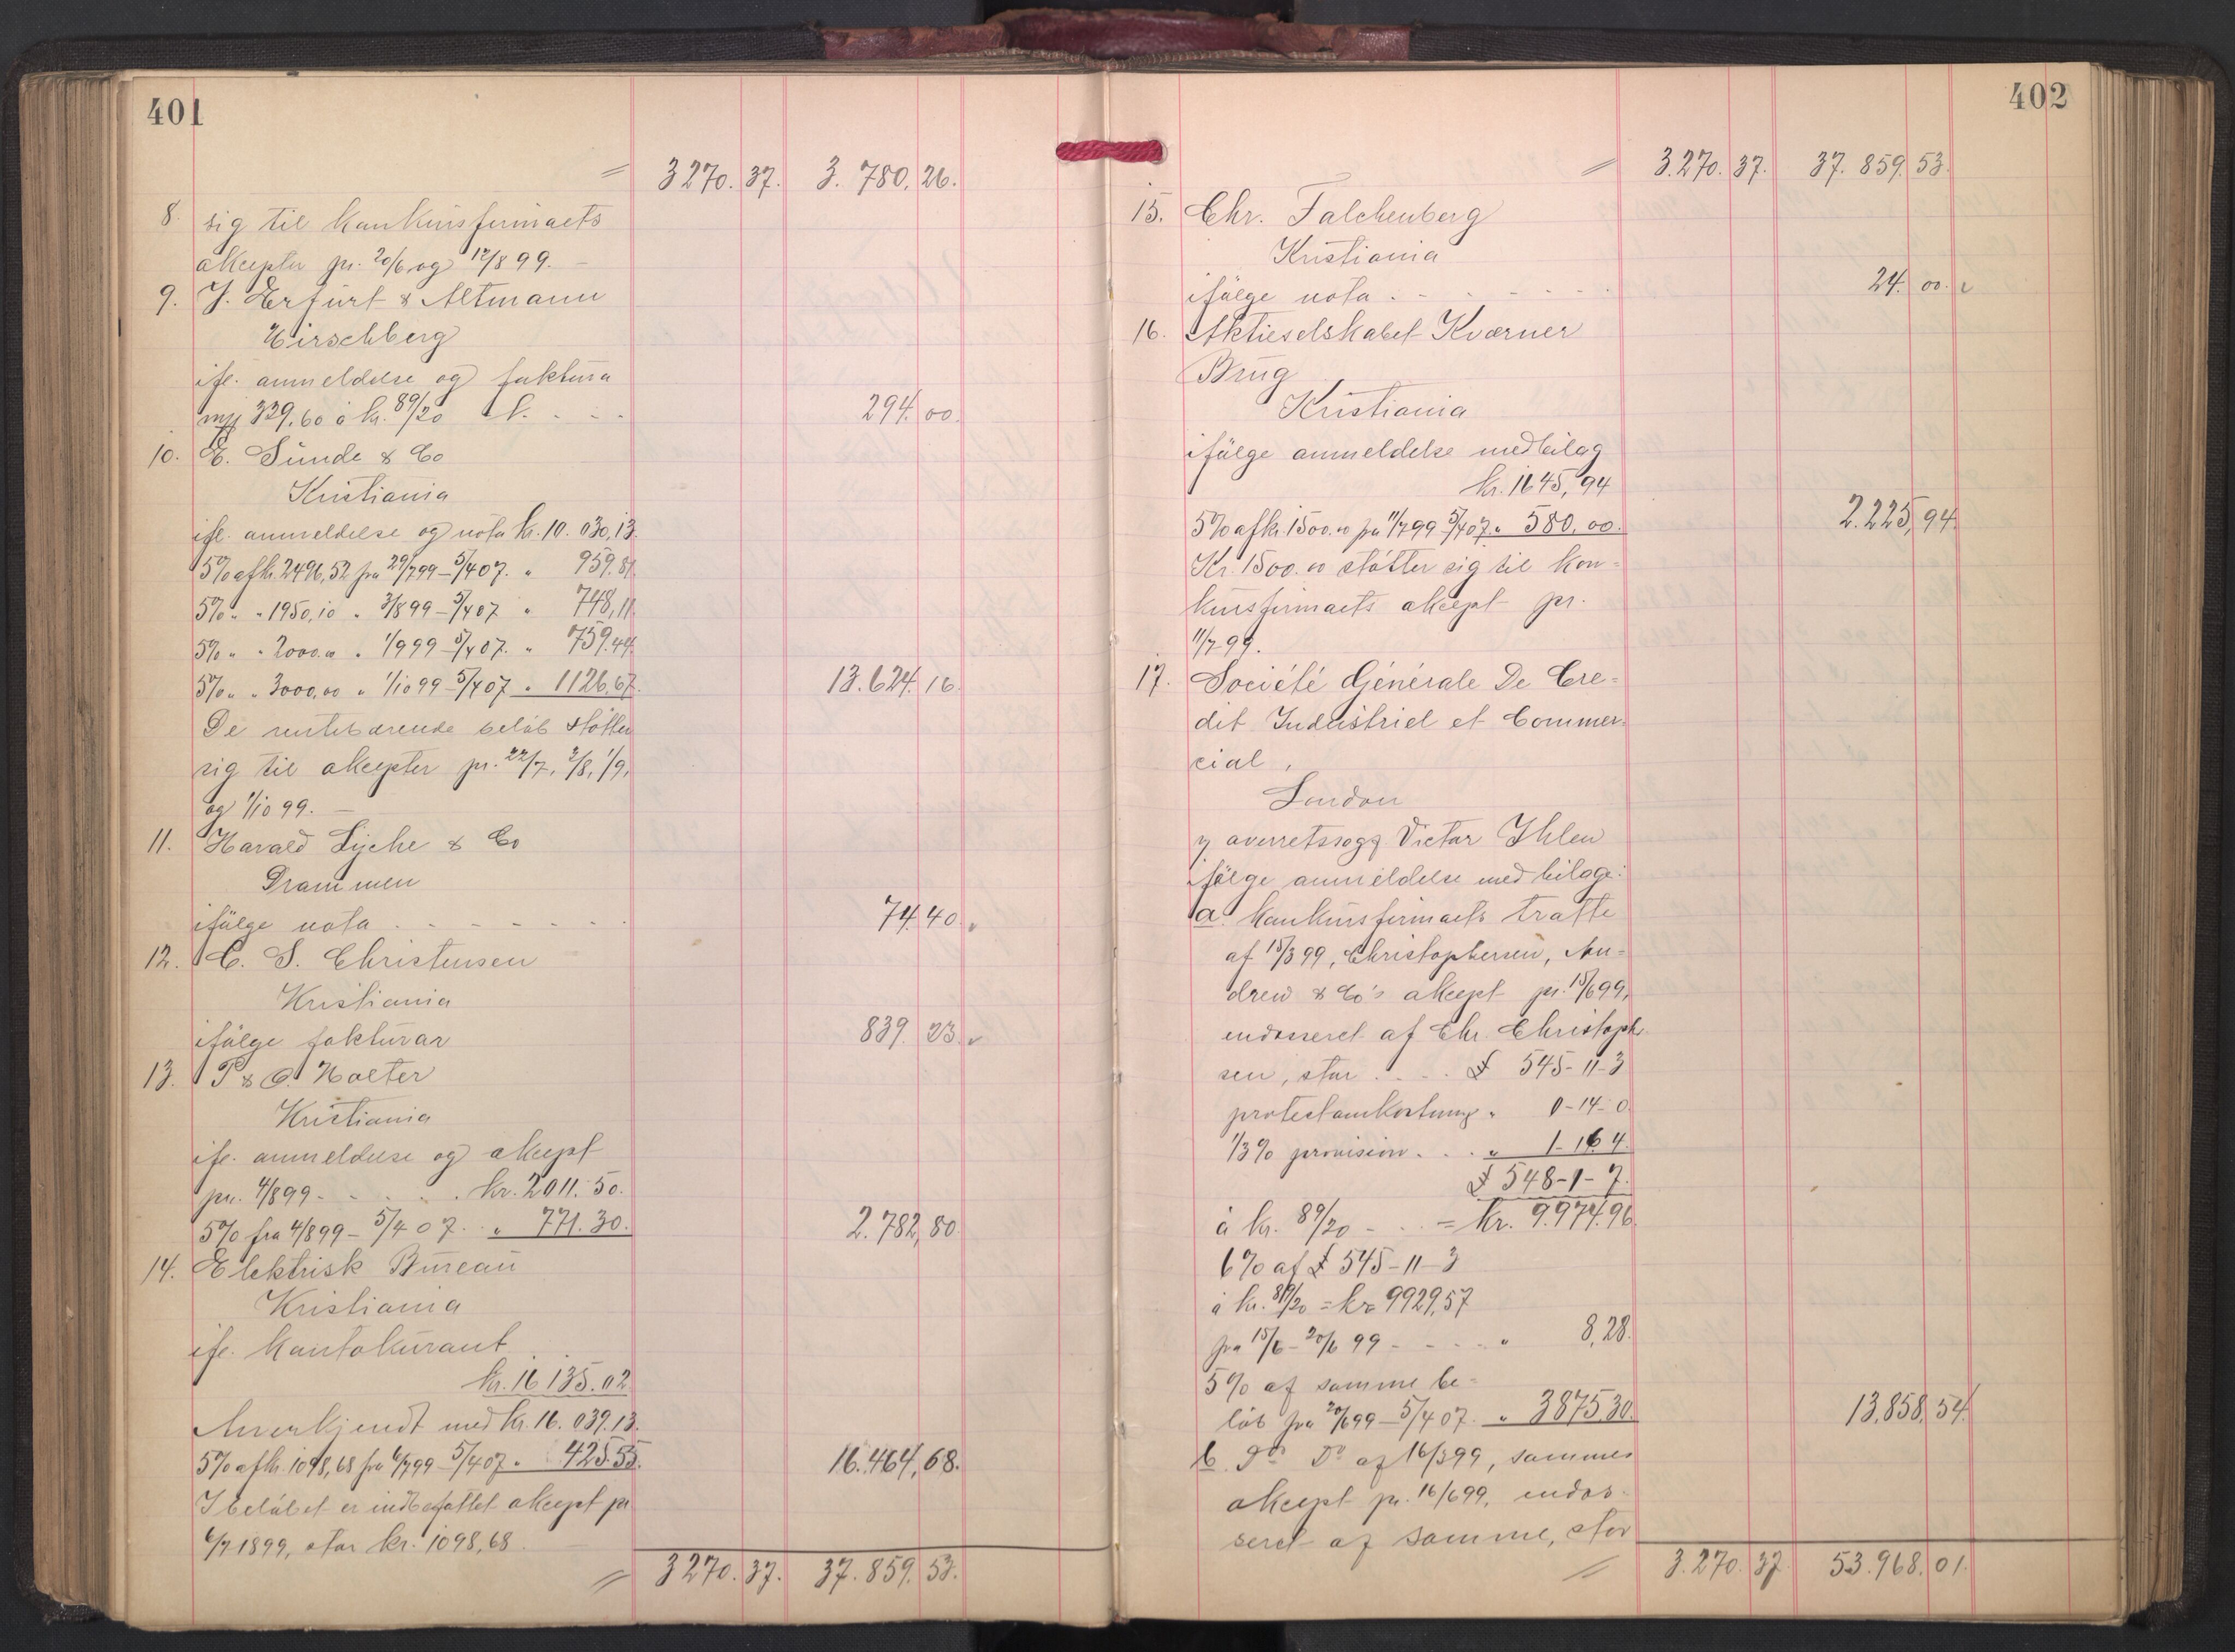 401
= 3270. 37. 3. 780, 26.
8. sig til konkursfirmaets
akcepter pr. 20/6 og 12/8 99. –
9. J. Erfurt & Altmann
Hirschberg
ifl. anmeldelse og faktura
329.60 à kr. 89/20 294. 00.
10. E. Sunde & Co
Kristiania
ifl. anmeldelse og nota kr. 10. 030,13.
5% af kr. 2496,52 fra 29/7 99 – 5/4 07. " 959.81.
5% " " 1950,10 " 3/8 99 – 5/4 07 " 748,11.
5% " " 2000.00 " 1/9 99 – 5/4 07. " 759.44.
5% " " 3000,00 " 1/10 99 – 5/4 07 " 1126.67. 13.624. 16.
De rentebærende beløb støtter
sig til akcepter pr. 22/7, 3/8, 1/9,
og 1/10 99. –
11. Harald Lyche & Co
Drammen
ifølge nota . - - - - - - 74. 40.
12. C. S. Christensen
Kristiania
ifølge fakturar 839. 23.
13. P & O. Holter
Kristiania
ifl. anmeldelse og akcept
pr. 4/8 99 - - - - . kr. 2011. 50.
5% fra 4/8 99 – 5/4 07. " 771. 30. 2. 782, 80.
14. Elektrisk Bureau
Kristiania
ifl. kontokurant
kr. 16 135.02
Anerkjendt med kr. 16. 039.13.
5% af kr. 1098,68 fra 6/7 99 – 5/4 07 " 425.55. 16. 464, 68.
I beløbet er indbefattet akcept pr
6/7 1899, stor kr. 1098,68.
= 3270. 37. 37. 859. 53.
402
= 3.270. 37. 37. 859. 53.
15. Chr. Falchenberg
Kristiania
ifølge nota . - - - - - - 24. 00.
16. Aktieselskabet Kværner
Brug
Kristiania
ifølge anmeldelse med bilag
kr. 1645, 94
5% af kr. 1500.00 fra 11/7 99 5/4 07. " 580. 00. 2.225, 94.
Kr. 1500.00 støtter sig til kon-
kursfirmaets akcept pr.
11/7 99.
17. Société Générale De Cre=
dit Industriel et Commer=
cial,
London
overretssagf. Victor Ihlen
ifølge anmeldelse med bilage:
a. konkursfirmaets tratte
af 15/3 99, Christophersen, An=
drew & Co's akcept pr. 15/6 99,
endosseret af Chr. Christopher
sen, stor . - - . £ 545 - 11 - 3
protestomkostning " 0 - 14 - 0.
1/3% provision . . . " 1 - 16 4.
£ 548 - 1 - 7.
à kr. 89/20 - . . = Kr. 9.974.96.
6% af £ 545 - 11 - 3
à kr. 89/20 = kr 9929,57
fra 15/6 – 20/6 99 - - - - " 8,28.
5% af samme be-
løb fra 20/6 99 – 5/4 07. " 3875.30. 13,858. 54.
b. Do Do af 16/3 99, sammes
akcept pr. 16/6 99, endos-
seret af samme, stor
= 3.270. 37. 53.968. 01.